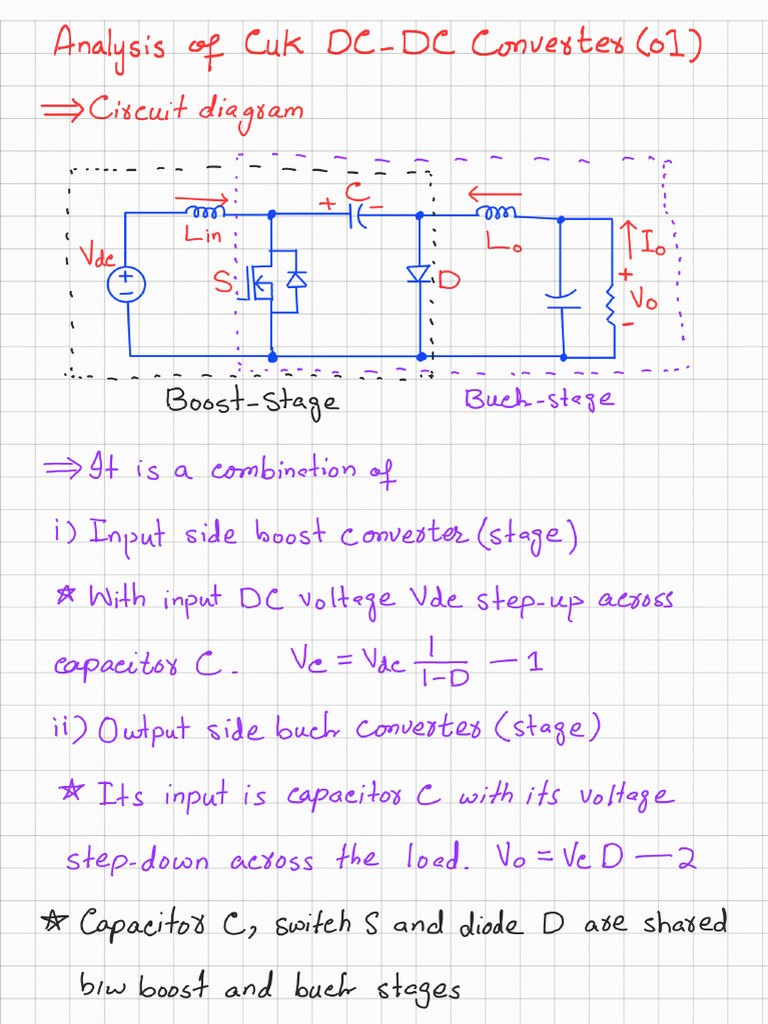 Analysis of Cuk DC-DC Converter (01)
⇒ Circuit diagram
+ C -
Lin
Lo
Vdc
+
-
S
D
Io
+
Vo
-
Boost-Stage
Buck-stage
⇒ It is a combination of
i) Input side boost converter (stage)
* With input DC voltage Vdc step-up across
capacitor C. Vc = Vdc 1/(1-D) — 1
ii) Output side buck converter (stage)
* Its input is capacitor C with its voltage
step-down across the load. Vo = Vc D — 2
* Capacitor C, switch S and diode D are shared
b/w boost and buck stages